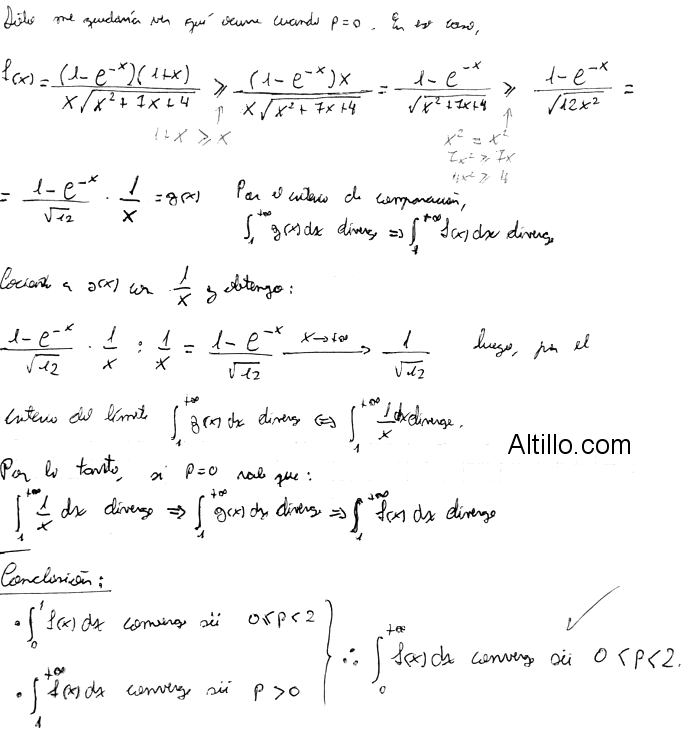 Sólo me quedaría ver qué ocurre cuando P=0. En ese caso,
f(x) = (1-e^-x)(1+x) / x√(x²+7x+4) ≥ (1-e^-x)x / x√(x²+7x+4) = 1-e^-x / √(x²+7x+4) ≥ 1-e^-x / √(12x²) =
1+x ≥ x
x² = x²
7x² ≥ 7x
4x² ≥ 4
= 1-e^-x / √12 · 1/x = g(x) Por el criterio de comparación,
∫₁^+∞ g(x)dx diverge ⇒ ∫₁^+∞ f(x)dx diverge
a g(x) con 1/x y obtengo:
1-e^-x / √12 · 1/x : 1/x = 1-e^-x / √12 x→+∞ → 1/√12 luego, por el
criterio del límite ∫₁^+∞ g(x)dx diverge ⇔ ∫₁^+∞ 1/x dx diverge.
Altillo.com
Por lo tanto, si P=0 vale que:
∫₁^+∞ 1/x dx diverge ⇒ ∫₁^+∞ g(x)dx diverge ⇒ ∫₁^+∞ f(x)dx diverge
Conclusión:
• ∫₀^1 f(x)dx converge sii 0<P<2
• ∫₁^+∞ f(x)dx converge sii P>0
∴ ∫₀^+∞ f(x)dx converge sii 0<P<2.